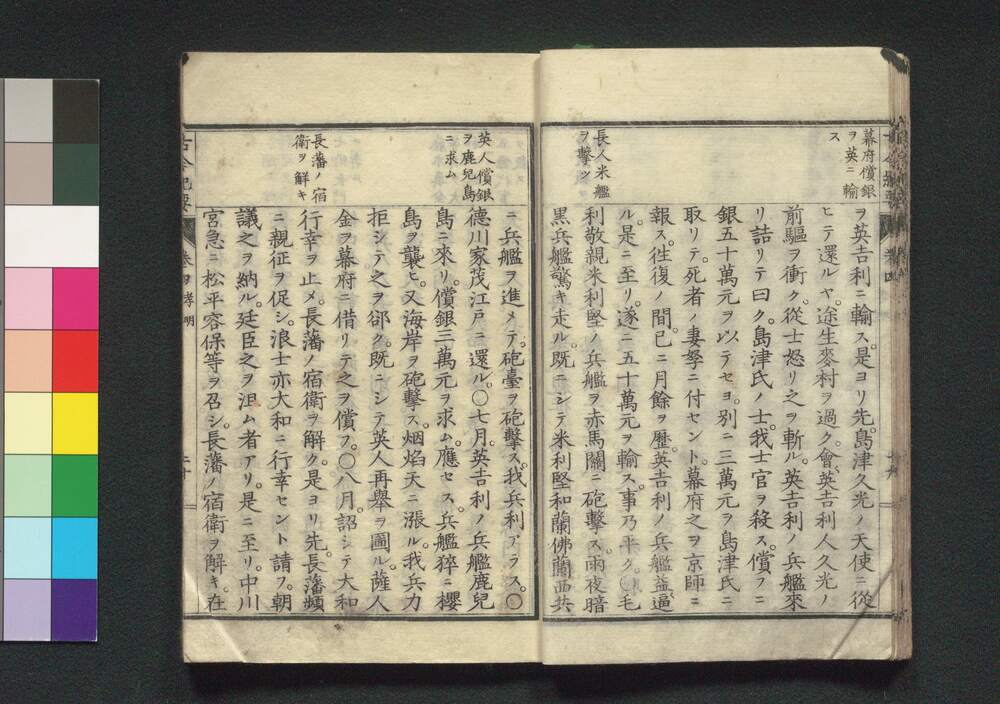 幕府償銀
ヲ英ニ輸
ス
ヲ英吉利ニ輸ス。是ヨリ先。島津久光ノ天使ニ從
ヒテ還ルヤ。途生麥村ヲ過ク。會英吉利人久光ノ
前驅ヲ衝ク。從士怒リ之ヲ斬ル。英吉利ノ兵艦來
リ詰リテ曰ク。島津氏ノ士。我士官ヲ殺ス。償フニ
銀五十萬元ヲ以テセヨ。別ニ三萬元ヲ島津氏ニ
取リテ。死者ノ妻孥ニ付セント。幕府之ヲ京師ニ
報ス。徃復ノ間。已ニ月餘ヲ歷。英吉利ノ兵艦益逼
ル。是ニ至リ。遂ニ五十萬元ヲ輸ス。事乃平ク。〇毛
長人米艦
ヲ擊ツ
利敬親米利堅ノ兵艦ヲ赤馬關ニ砲擊ス。雨夜暗
黑。兵艦驚キ走ル。既ニシテ米利堅和蘭佛蘭西共
ニ兵艦ヲ進メテ。砲臺ヲ砲擊ス。我兵利アラス。〇
德川家茂江戸ニ還ル。〇七月。英吉利ノ兵艦鹿兒
英人償銀
ヲ鹿兒島
ニ求ム
島ニ來リ。償銀三萬元ヲ求ム。應セス。兵艦猝ニ櫻
島ヲ襲ヒ。又海岸ヲ砲擊ス。烟焰天ニ漲ル。我兵力
拒シテ之ヲ郤ク。既ニシテ英人再舉ヲ圖ル。薩人
金ヲ幕府ニ借リテ之ヲ償フ。〇八月。詔シテ大和
長藩ノ宿
衛ヲ解キ
行幸ヲ止メ。長藩ノ宿衛ヲ解ク。是ヨリ先。長藩頻
ニ親征ヲ促シ。浪士亦大和ニ行幸セント請フ。朝
議之ヲ納ル。廷臣之ヲ沮ム者アリ。是ニ至リ。中川
宮急ニ松平容保等ヲ召シ。長藩ノ宿衛ヲ解キ。在
古今紀要
卷四 孝明
二十